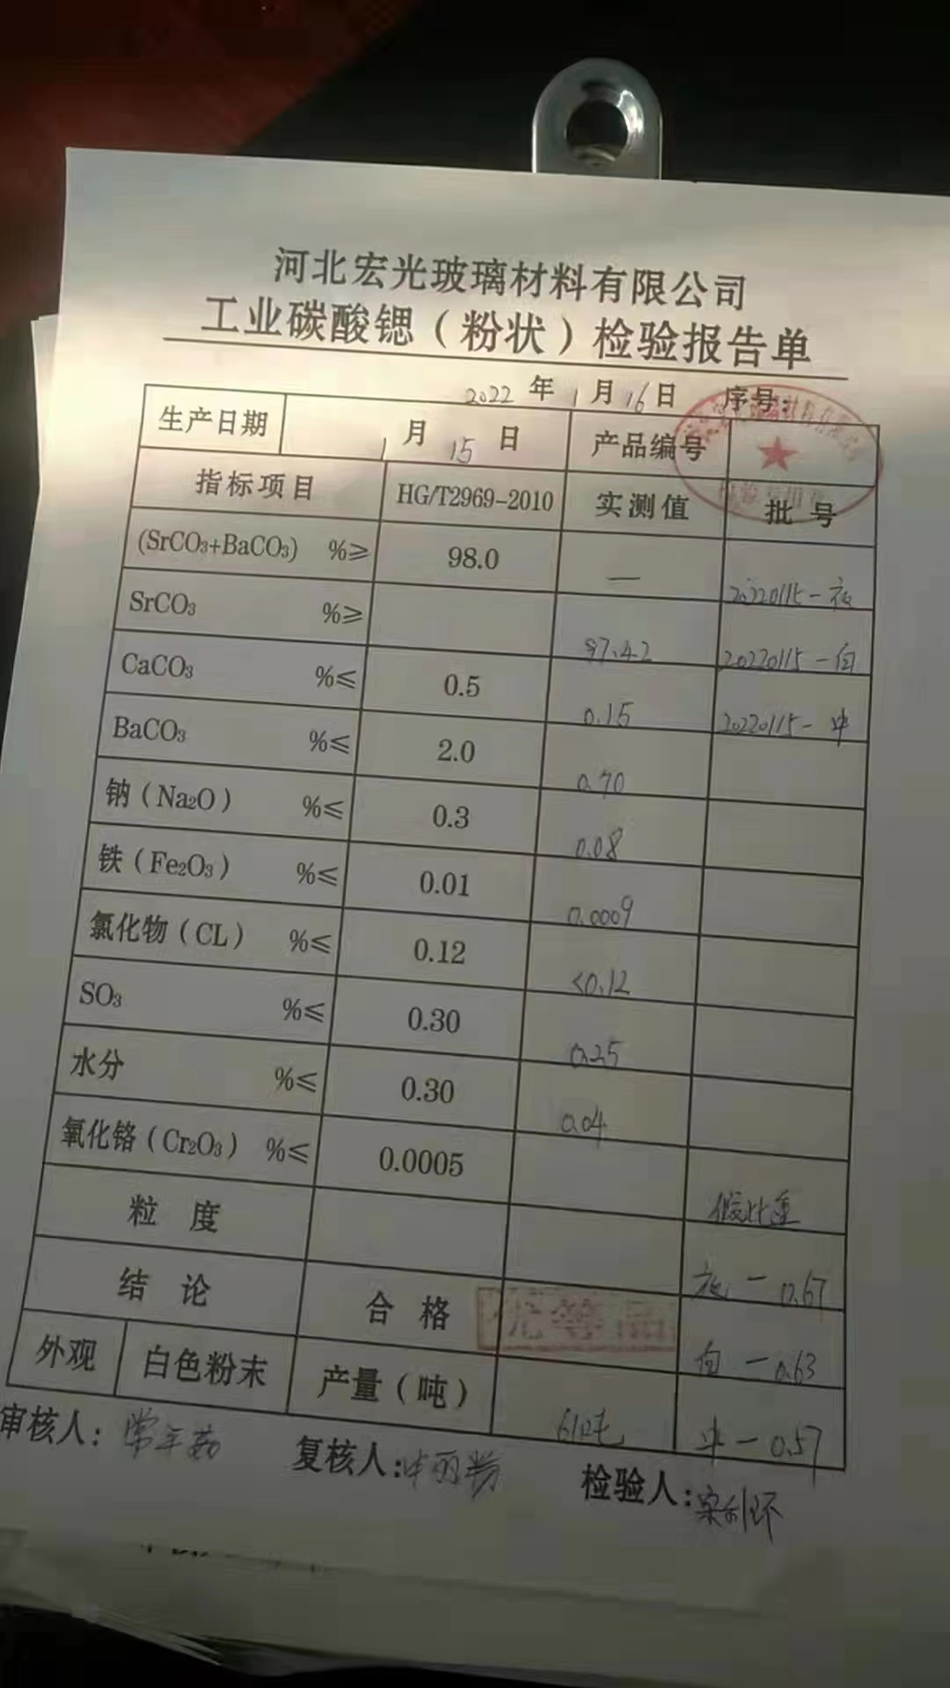 河北宏光玻璃材料有限公司
工业碳酸锶（粉状）检验报告单
2022 年 1 月 16 日 序号:
生产日期 1 月 15 日 产品编号
指标项目 HG/T2969-2010 实测值 批号
(SrCO₃+BaCO₃) %≥ 98.0 — 20220115-夜
SrCO₃ %≥ 97.42 20220115-白
CaCO₃ %≤ 0.5 0.15 20220115-中
BaCO₃ %≤ 2.0 0.70
钠（Na₂O） %≤ 0.3 0.08
铁（Fe₂O₃） %≤ 0.01 0.0009
氯化物（CL） %≤ 0.12 <0.12
SO₃ %≤ 0.30 0.25
水分 %≤ 0.30 0.04
氧化铬（Cr₂O₃） %≤ 0.0005 假比重
粒度 夜-0.67
结论 合格 优等品 白-0.63
外观 白色粉末 产量（吨） 61吨 中-0.57
审核人: 复核人: 检验人: